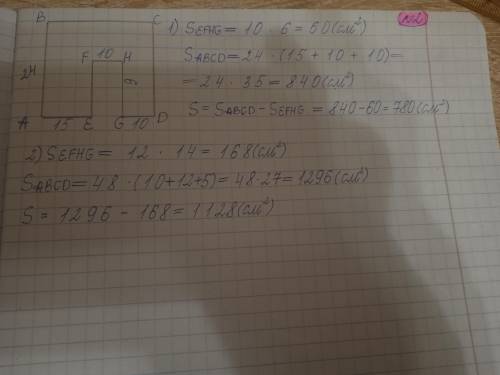 B C
F 10 H
24 6
A 15 E G 10 D
№2
1) SEFHG = 10 · 6 = 60 (см²)
SABCD = 24 · (15 + 10 + 10) =
= 24 · 35 = 840 (см²)
S = SABCD - SEFHG = 840 - 60 = 780 (см²)
2) SEFHG = 12 · 14 = 168 (см²)
SABCD = 48 · (10+12+5) = 48 · 27 = 1296 (см²)
S = 1296 - 168 = 1128 (см²)